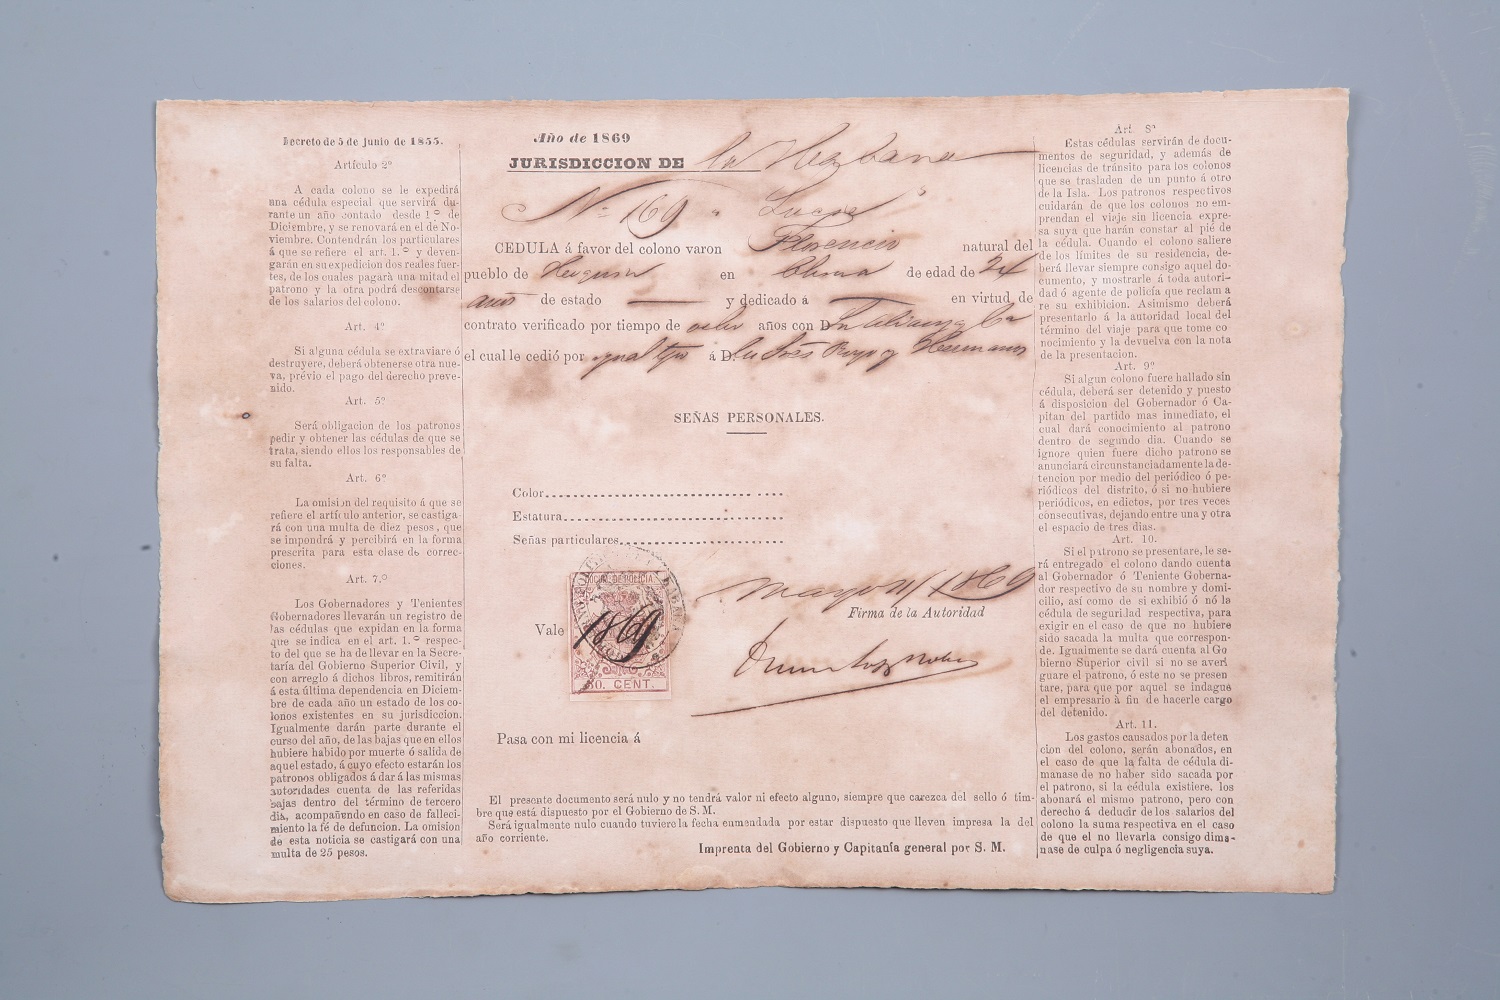 Decreto de 5 de Junio de 1855.
Artículo 2º
A cada colono se le expedirá
una cédula especial que servirá du-
rante un año contado desde 1º de
Diciembre, y se renovará en el de No-
viembre. Contendrán los particulares
á que se refiere el art. 1.º y deven-
garán en su expedicion dos reales fuer-
tes, de los cuales pagará una mitad el
patrono y la otra podrá descontarse
de los salarios del colono.
Art. 4º
Si alguna cédula se extraviare ó
destruyere, deberá obtenerse otra nue-
va, prévio el pago del derecho preve-
nido.
Art. 5º
Será obligacion de los patronos
pedir y obtener las cédulas de que se
trata, siendo ellos los responsables de
su falta.
Art. 6º
La omision del requisito á que se
refiere el artículo anterior, se castiga-
rá con una multa de diez pesos, que
se impondrá y percibirá en la forma
prescrita para esta clase de correc-
ciones.
Art. 7.º
Los Gobernadores y Tenientes
Gobernadores llevarán un registro de
las cédulas que expidan en la forma
que se indica en el art. 1.º respec-
to del que se ha de llevar en la Secre-
taría del Gobierno Superior Civil, y
con arreglo á dichos libros, remitirán
á esta última dependencia en Diciem-
bre de cada año un estado de los co-
lonos existentes en su jurisdiccion.
Igualmente darán parte durante el
curso del año, de las bajas que en ellos
hubiere habido por muerte ó salida de
aquel estado, á cuyo efecto estarán los
patronos obligados á dar á las mismas
autoridades cuenta de las referidas
bajas dentro del término de tercero
dia, acompañando en caso de falleci-
miento la fé de defuncion. La omision
de esta noticia se castigará con una
multa de 25 pesos.
Año de 1869
JURISDICCION DE la Habana
Nº 169 Lucas
CEDULA á favor del colono varon Florencio natural del
pueblo de en China de edad de 24
años de estado y dedicado á en virtud de
contrato verificado por tiempo de ocho años con D
el cual le cedió por igual tpo á D. Royo y Hermanos
SEÑAS PERSONALES.
Color
Estatura
Señas particulares
Mayo 1869
Firma de la Autoridad
Vale
DE POLICIA
1869
50. CENT.
Pasa con mi licencia á
El presente documento será nulo y no tendrá valor ni efecto alguno, siempre que carezca del sello ó tim-
bre que está dispuesto por el Gobierno de S. M.
Será igualmente nulo cuando tuviere la fecha enmendada por estar dispuesto que lleven impresa la del
año corriente.
Imprenta del Gobierno y Capitanía general por S. M.
Art. 8º
Estas cédulas servirán de docu-
mentos de seguridad, y además de
licencias de tránsito para los colonos
que se trasladen de un punto á otro
de la Isla. Los patronos respectivos
cuidarán de que los colonos no em-
prendan el viaje sin licencia expre-
sa suya que harán constar al pié de
la cédula. Cuando el colono saliere
de los límites de su residencia, de-
berá llevar siempre consigo aquel do-
cumento, y mostrarle á toda autori-
dad ó agente de policía que reclama
re su exhibicion. Asimismo deberá
presentarlo á la autoridad local del
término del viaje para que tome co
nocimiento y la devuelva con la nota
de la presentacion.
Art. 9º
Si algun colono fuere hallado sin
cédula, deberá ser detenido y puesto
á disposicion del Gobernador ó Ca-
pitan del partido mas inmediato, el
cual dará conocimiento al patrono
dentro de segundo dia. Cuando se
ignore quien fuere dicho patrono se
anunciará circunstanciadamente la de-
tencion por medio del periódico ó pe-
riódicos del distrito, ó si no hubiere
periódicos, en edictos, por tres veces
consecutivas, dejando entre una y otra
el espacio de tres dias.
Art. 10.
Si el patrono se presentare, le se-
rá entregado el colono dando cuenta
al Gobernador ó Teniente Goberna-
dor respectivo de su nombre y domi-
cilio, así como de si exhibió ó nó la
cédula de seguridad respectiva, para
exigir en el caso de que no hubiere
sido sacada la multa que correspon-
de. Igualmente se dará cuenta al Go
bierno Superior civil si no se averi
guare el patrono, ó este no se presen
tare, para que por aquel se indague
el empresario á fin de hacerle cargo
del detenido.
Art. 11.
Los gastos causados por la deten
cion del colono, serán abonados, en
el caso de que la falta de cédula di-
manase de no haber sido sacada por
el patrono, si la cédula existiere, los
abonará el mismo patrono, pero con
derecho á deducir de los salarios del
colono la suma respectiva en el caso
de que el no llevarla consigo dima-
nase de culpa ó negligencia suya.